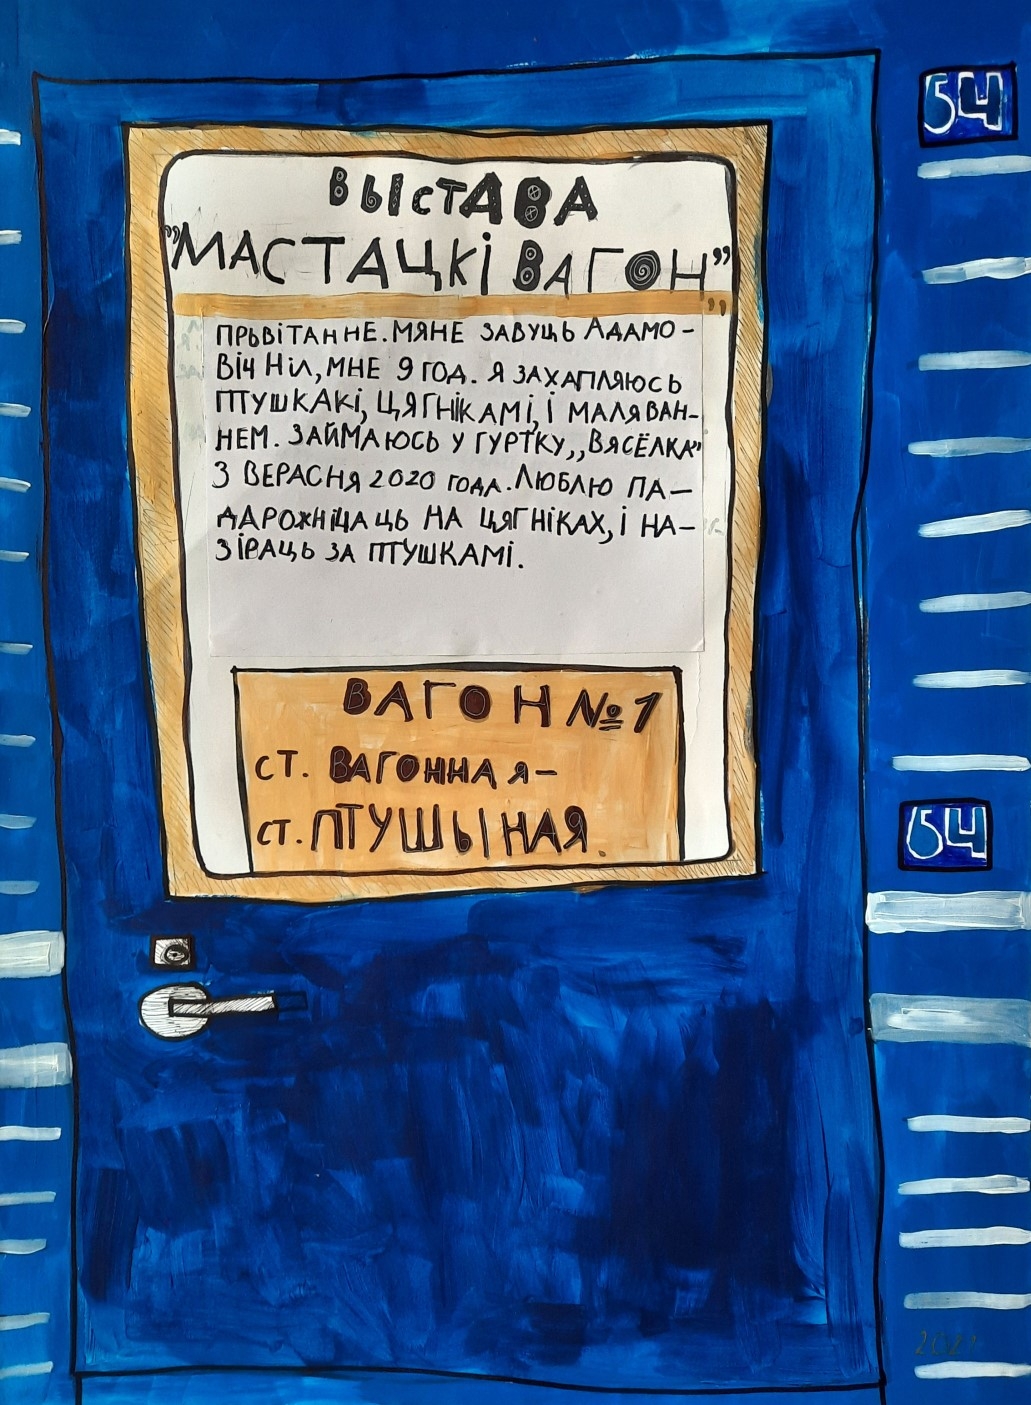 ВЫСТАВА
"МАСТАЦКІ ВАГОН"
ПРЫВІТАННЕ. МЯНЕ ЗАВУЦЬ АДАМО-
ВІЧ НІЛ, МНЕ 9 ГОД. Я ЗАХАПЛЯЮСЬ
ПТУШКАКІ, ЦЯГНІКАМІ, І МАЛЯВАН-
НЕМ. ЗАЙМАЮСЬ У ГУРТКУ „ВЯСЁЛКА"
З ВЕРАСНЯ 2020 ГОДА. ЛЮБЛЮ ПА-
ДАРОЖНІЧАЦЬ НА ЦЯГНІКАХ, І НА-
ЗІРАЦЬ ЗА ПТУШКАМІ.
ВАГОН №1
СТ. ВАГОННАЯ-
СТ. ПТУШЫНАЯ.
54
54